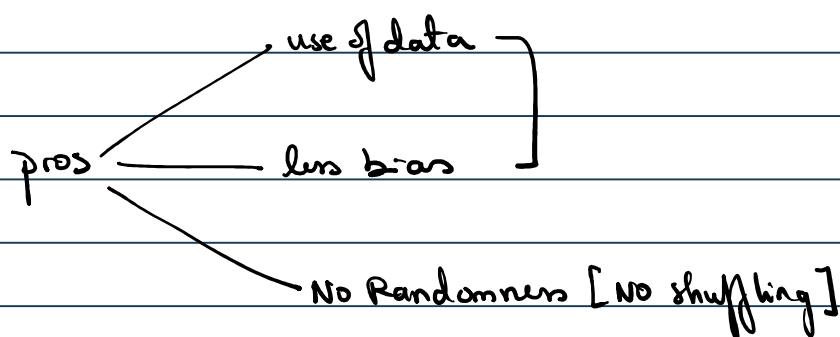 use of data
pros
less bias
No Randomness [No shuffling]